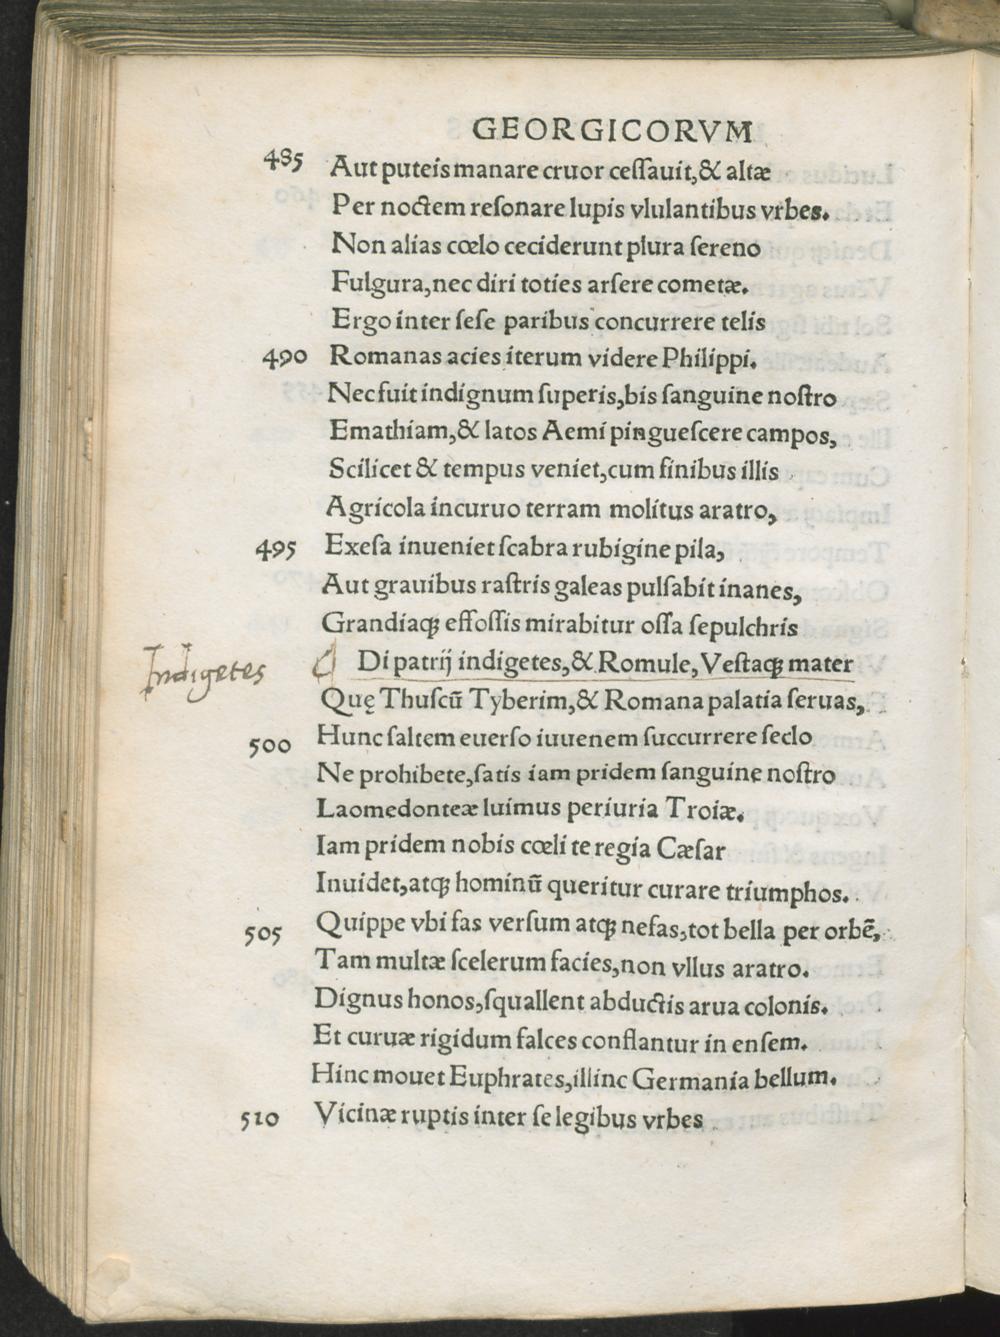 GEORGICORVM
485 Aut puteis manare cruor ceſſauit,& altæ
Per noctem reſonare lupis vlulantibus vrbes.
Non alias cœlo ceciderunt plura ſereno
Fulgura,nec diri toties arſere cometæ.
Ergo inter ſeſe paribus concurrere telis
490 Romanas acies iterum videre Philippi.
Nec fuit indignum ſuperis,bis ſanguine noſtro
Emathiam,& latos Aemi pingueſcere campos,
Scilicet & tempus veniet,cum finibus illis
Agricola incuruo terram molitus aratro,
495 Exeſa inueniet ſcabra rubigine pila,
Aut grauibus raſtris galeas pulſabit inanes,
Grandiaq; effoſſis mirabitur oſſa ſepulchris
Indigetes Di patrij indigetes,& Romule,Veſtaq; mater
Quę Thuſcū Tyberim,& Romana palatia ſeruas,
500 Hunc ſaltem euerſo iuuenem ſuccurrere ſeclo
Ne prohibete,ſatis iam pridem ſanguine noſtro
Laomedonteæ luimus periuria Troiæ.
Iam pridem nobis cœli te regia Cæſar
Inuidet,atq; hominū queritur curare triumphos.
505 Quippe vbi fas verſum atq; nefas,tot bella per orbē,
Tam multæ ſcelerum facies,non vllus aratro.
Dignus honos,ſquallent abductis arua colonis.
Et curuæ rigidum falces conflantur in enſem.
Hinc mouet Euphrates,illinc Germania bellum.
510 Vicinæ ruptis inter ſe legibus vrbes